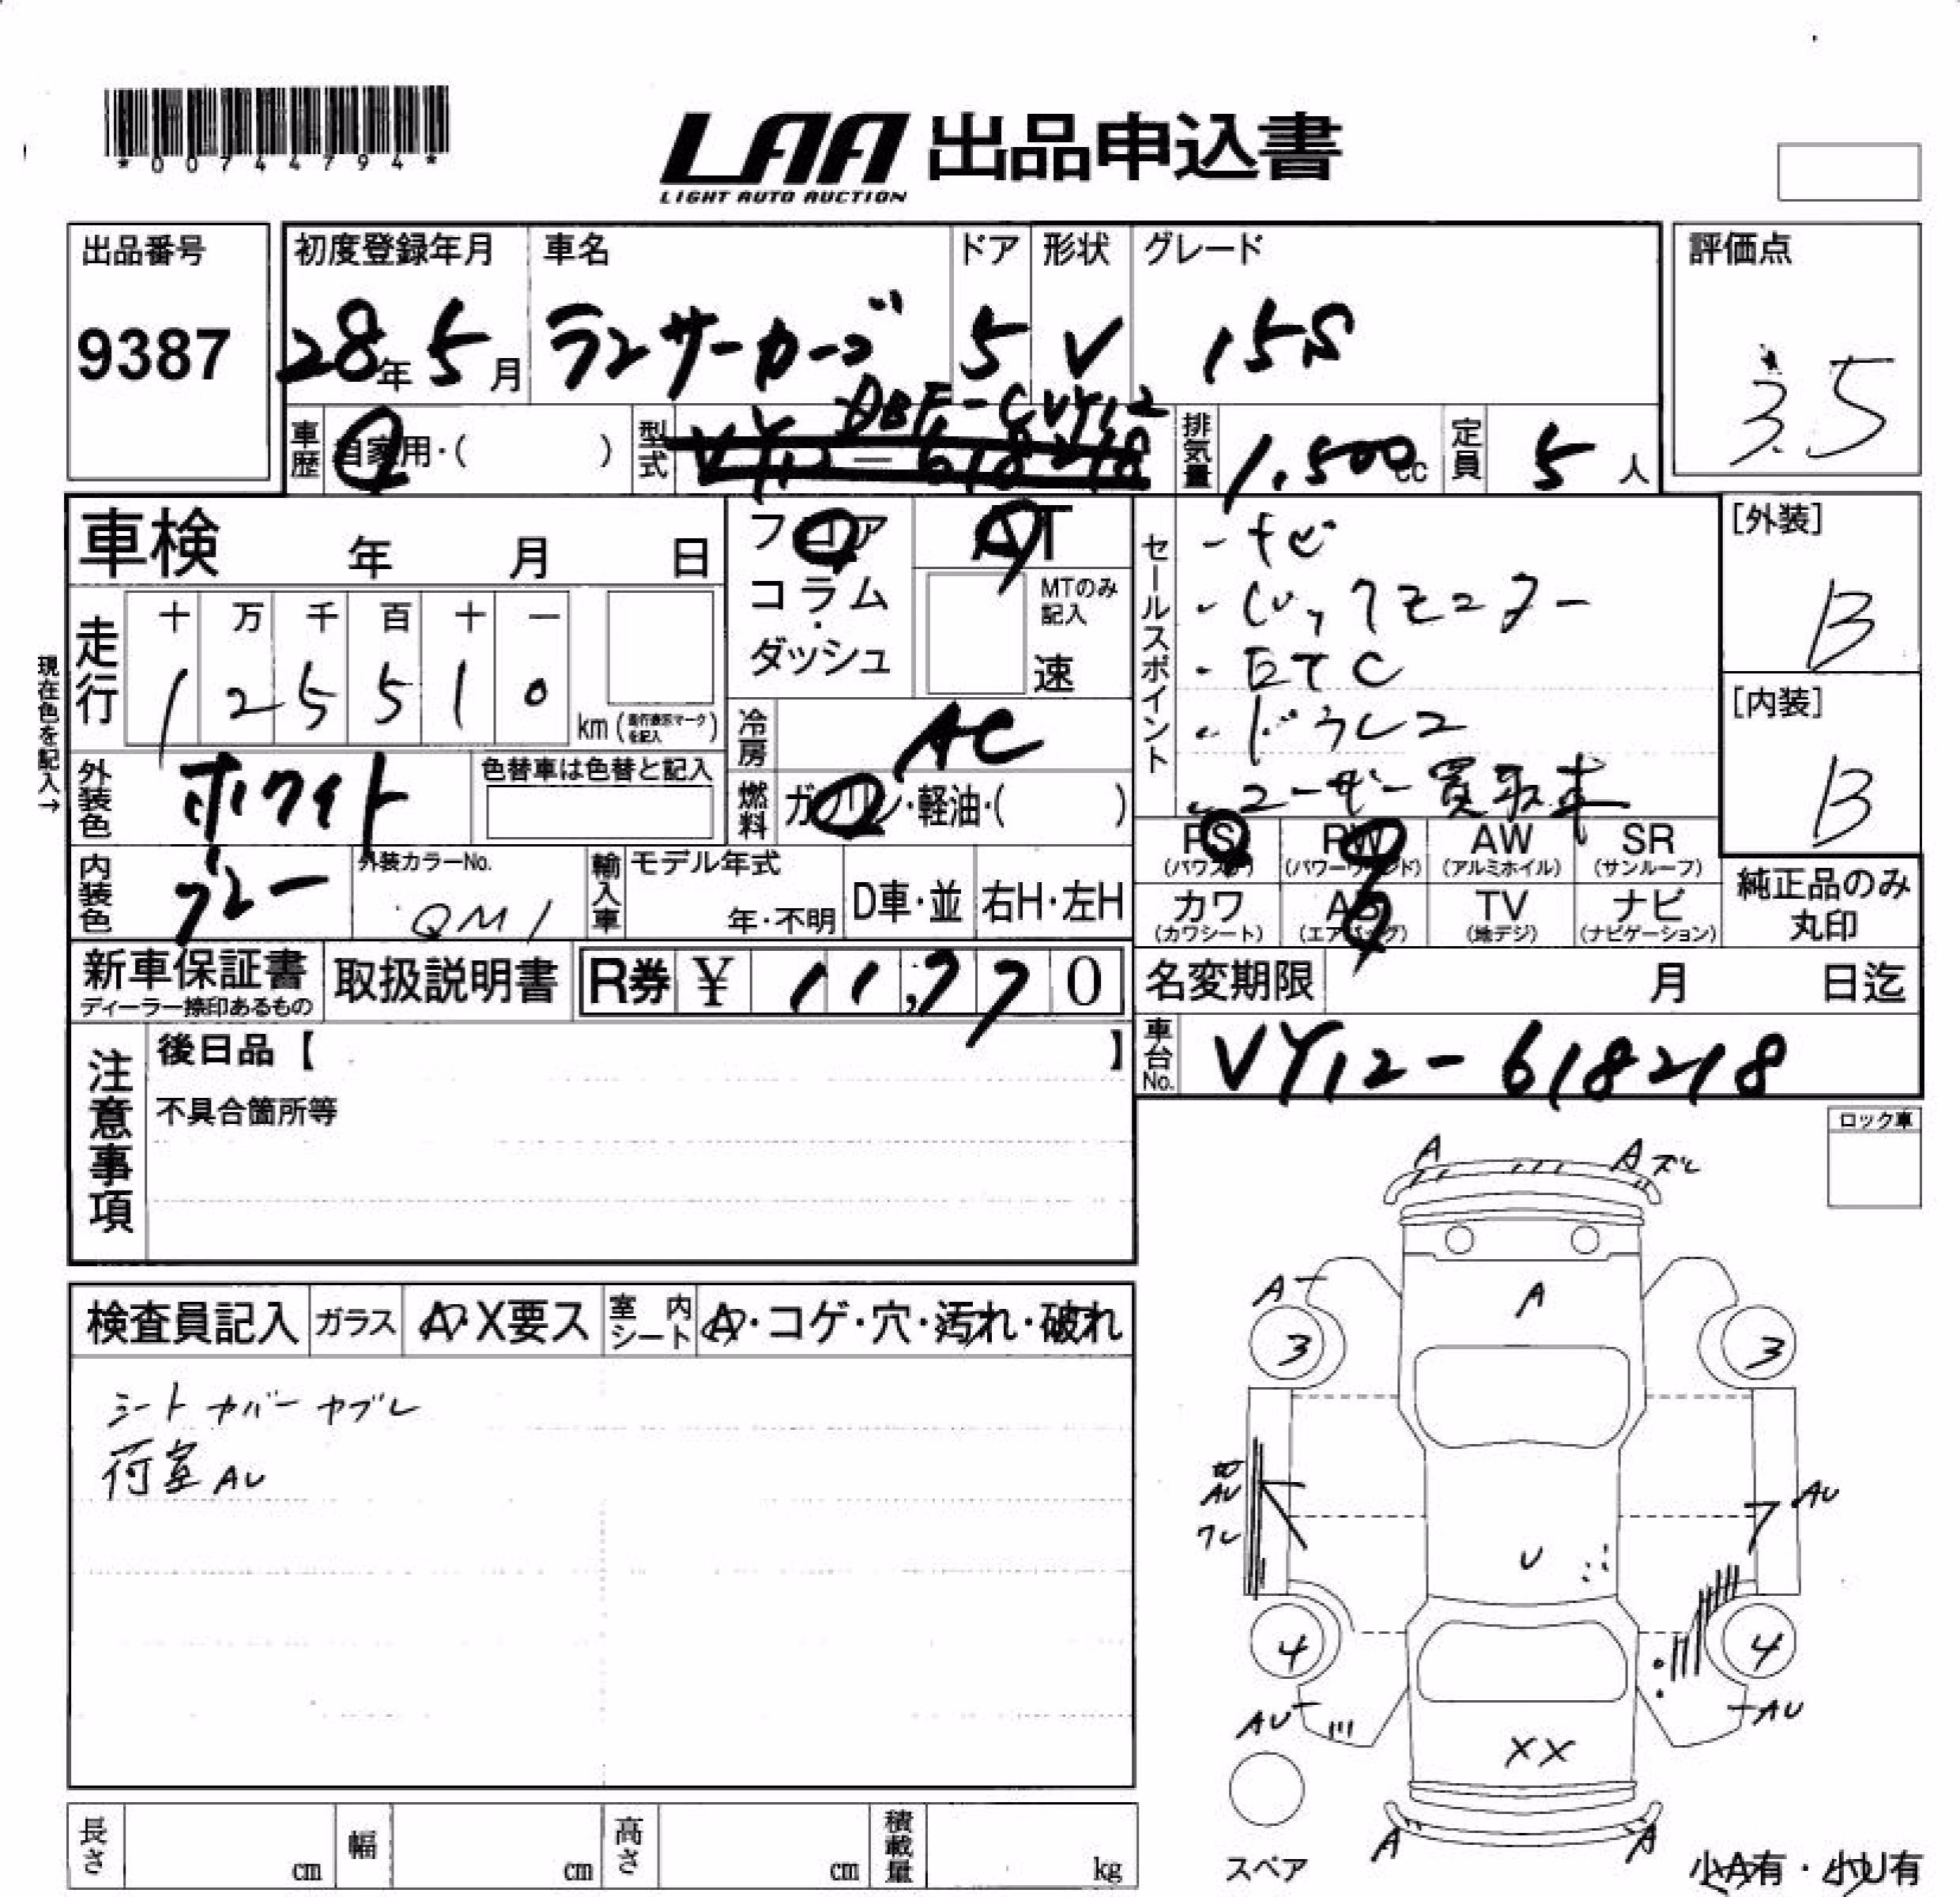 *00744794*
LAA 出品申込書
LIGHT AUTO AUCTION
出品番号
9387
初度登録年月
28年5月
車名
ランサーカーゴ
ドア
5
形状
V
グレード
15S
評価点
3.5
車歴
自家用・( )
型式
DBF-CVY12
VY12-618218
排気量
1.500cc
定員
5人
車検 年 月 日
フロア
コラム・
ダッシュ
AT
MTのみ
記入
速
セールスポイント
-ナビ
・バックモニター
・ETC
・ドラレコ
・ユーザー買取車
[外装]
B
[内装]
B
現在色を記入→
走行
十 万 千 百 十 一
1 2 5 5 1 0
km(走行表示マークを記入)
冷房
AC
外装色
ホワイト
色替車は色替と記入
燃料
ガソリン・軽油・( )
PS
(パワステ)
PW
(パワーウィンド)
AW
(アルミホイル)
SR
(サンルーフ)
内装色
グレー
外装カラーNo.
QM1
輸入車
モデル年式
年・不明
D車・並
右H・左H
カワ
(カワシート)
AB
(エアバッグ)
TV
(地デジ)
ナビ
(ナビゲーション)
純正品のみ
丸印
新車保証書
ディーラー捺印あるもの
取扱説明書
R券 ¥ 11,770
名変期限 月 日迄
車台No.
VY12-618218
注意事項
後日品【 】
不具合箇所等
ロック車
A
A ズレ
A
A
3
3
AU
クレ
AU
U
4
4
AU
AU
XX
A
A
スペア
小A有・小U有
検査員記入
ガラス
A・X要ス
室内
シート
A・コゲ・穴・汚れ・破れ
シートカバーヤブレ
荷室AU
長さ cm
幅 cm
高さ cm
積載量 kg